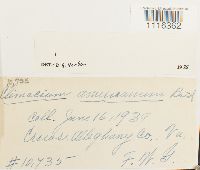 1116362
1
Det.
19
10,735
Climacium americanum Brid
Coll. June 16, 1937
Crows Alleghany Co, Va.
#10,735